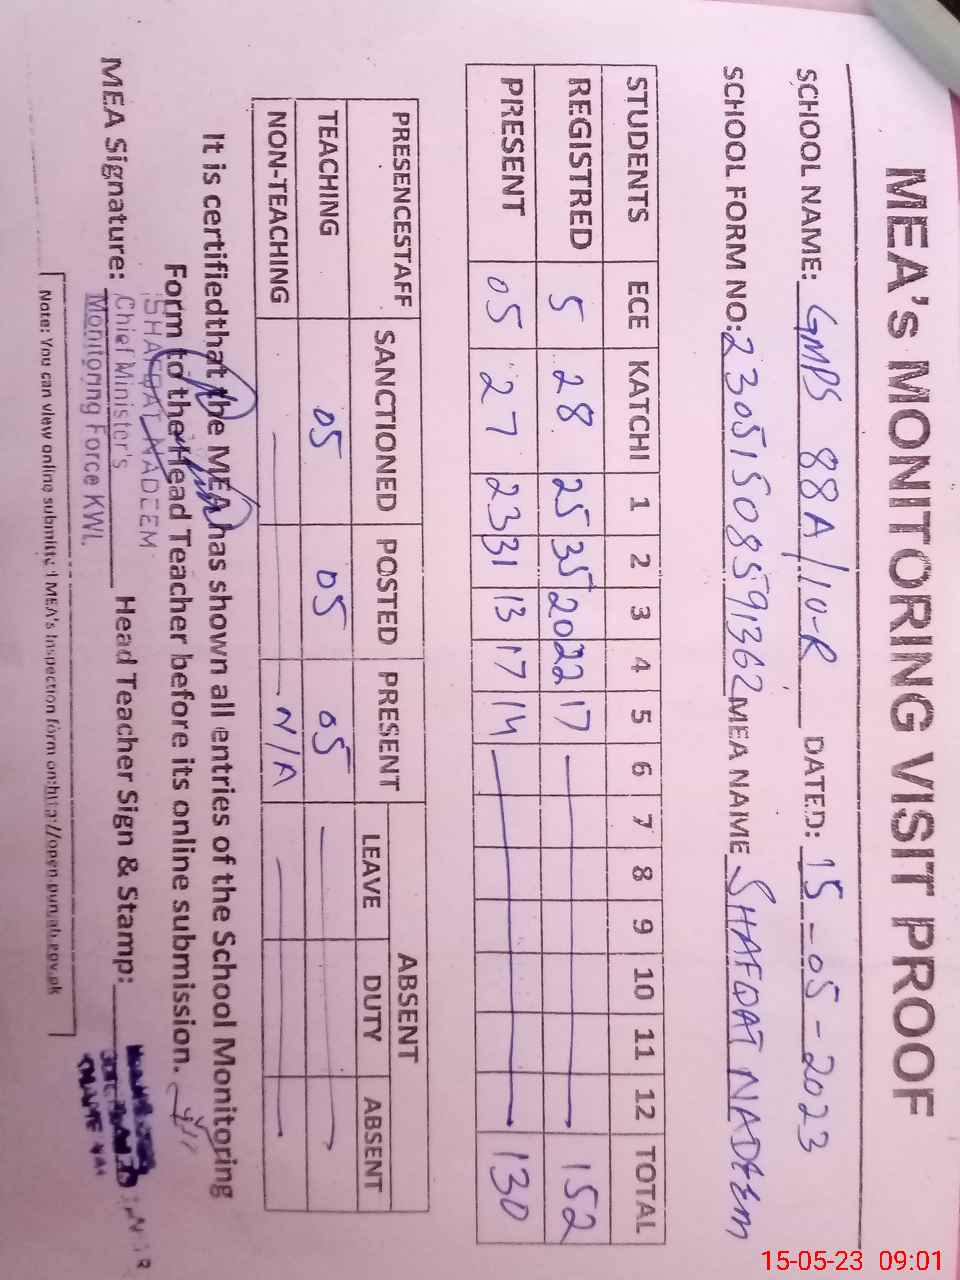 MEA's MONITORING VISIT PROOF
SCHOOL NAME: GMPS 88A/10-R DATED: 15-05-2023
SCHOOL FORM NO: 23051508591362 MEA NAME SHAFQAT NADEEM
STUDENTS ECE KATCHI 1 2 3 4 5 6 7 8 9 10 11 12 TOTAL
REGISTRED 5 28 25 35 20 22 17 152
PRESENT 05 27 23 31 13 17 14 130
PRESENCESTAFF SANCTIONED POSTED PRESENT ABSENT
LEAVE DUTY ABSENT
TEACHING 05 05 05
NON-TEACHING N/A
It is certifiedthat the MEA has shown all entries of the School Monitoring
Form to the Head Teacher before its online submission.
MEA Signature: Head Teacher Sign & Stamp:
SHAFQAT NADEEM
Chief Minister's
Monitoring Force KWL
Note: You can view online submitted MEA's Inspection form on:http://open.punjab.gov.pk
15-05-23 09:01